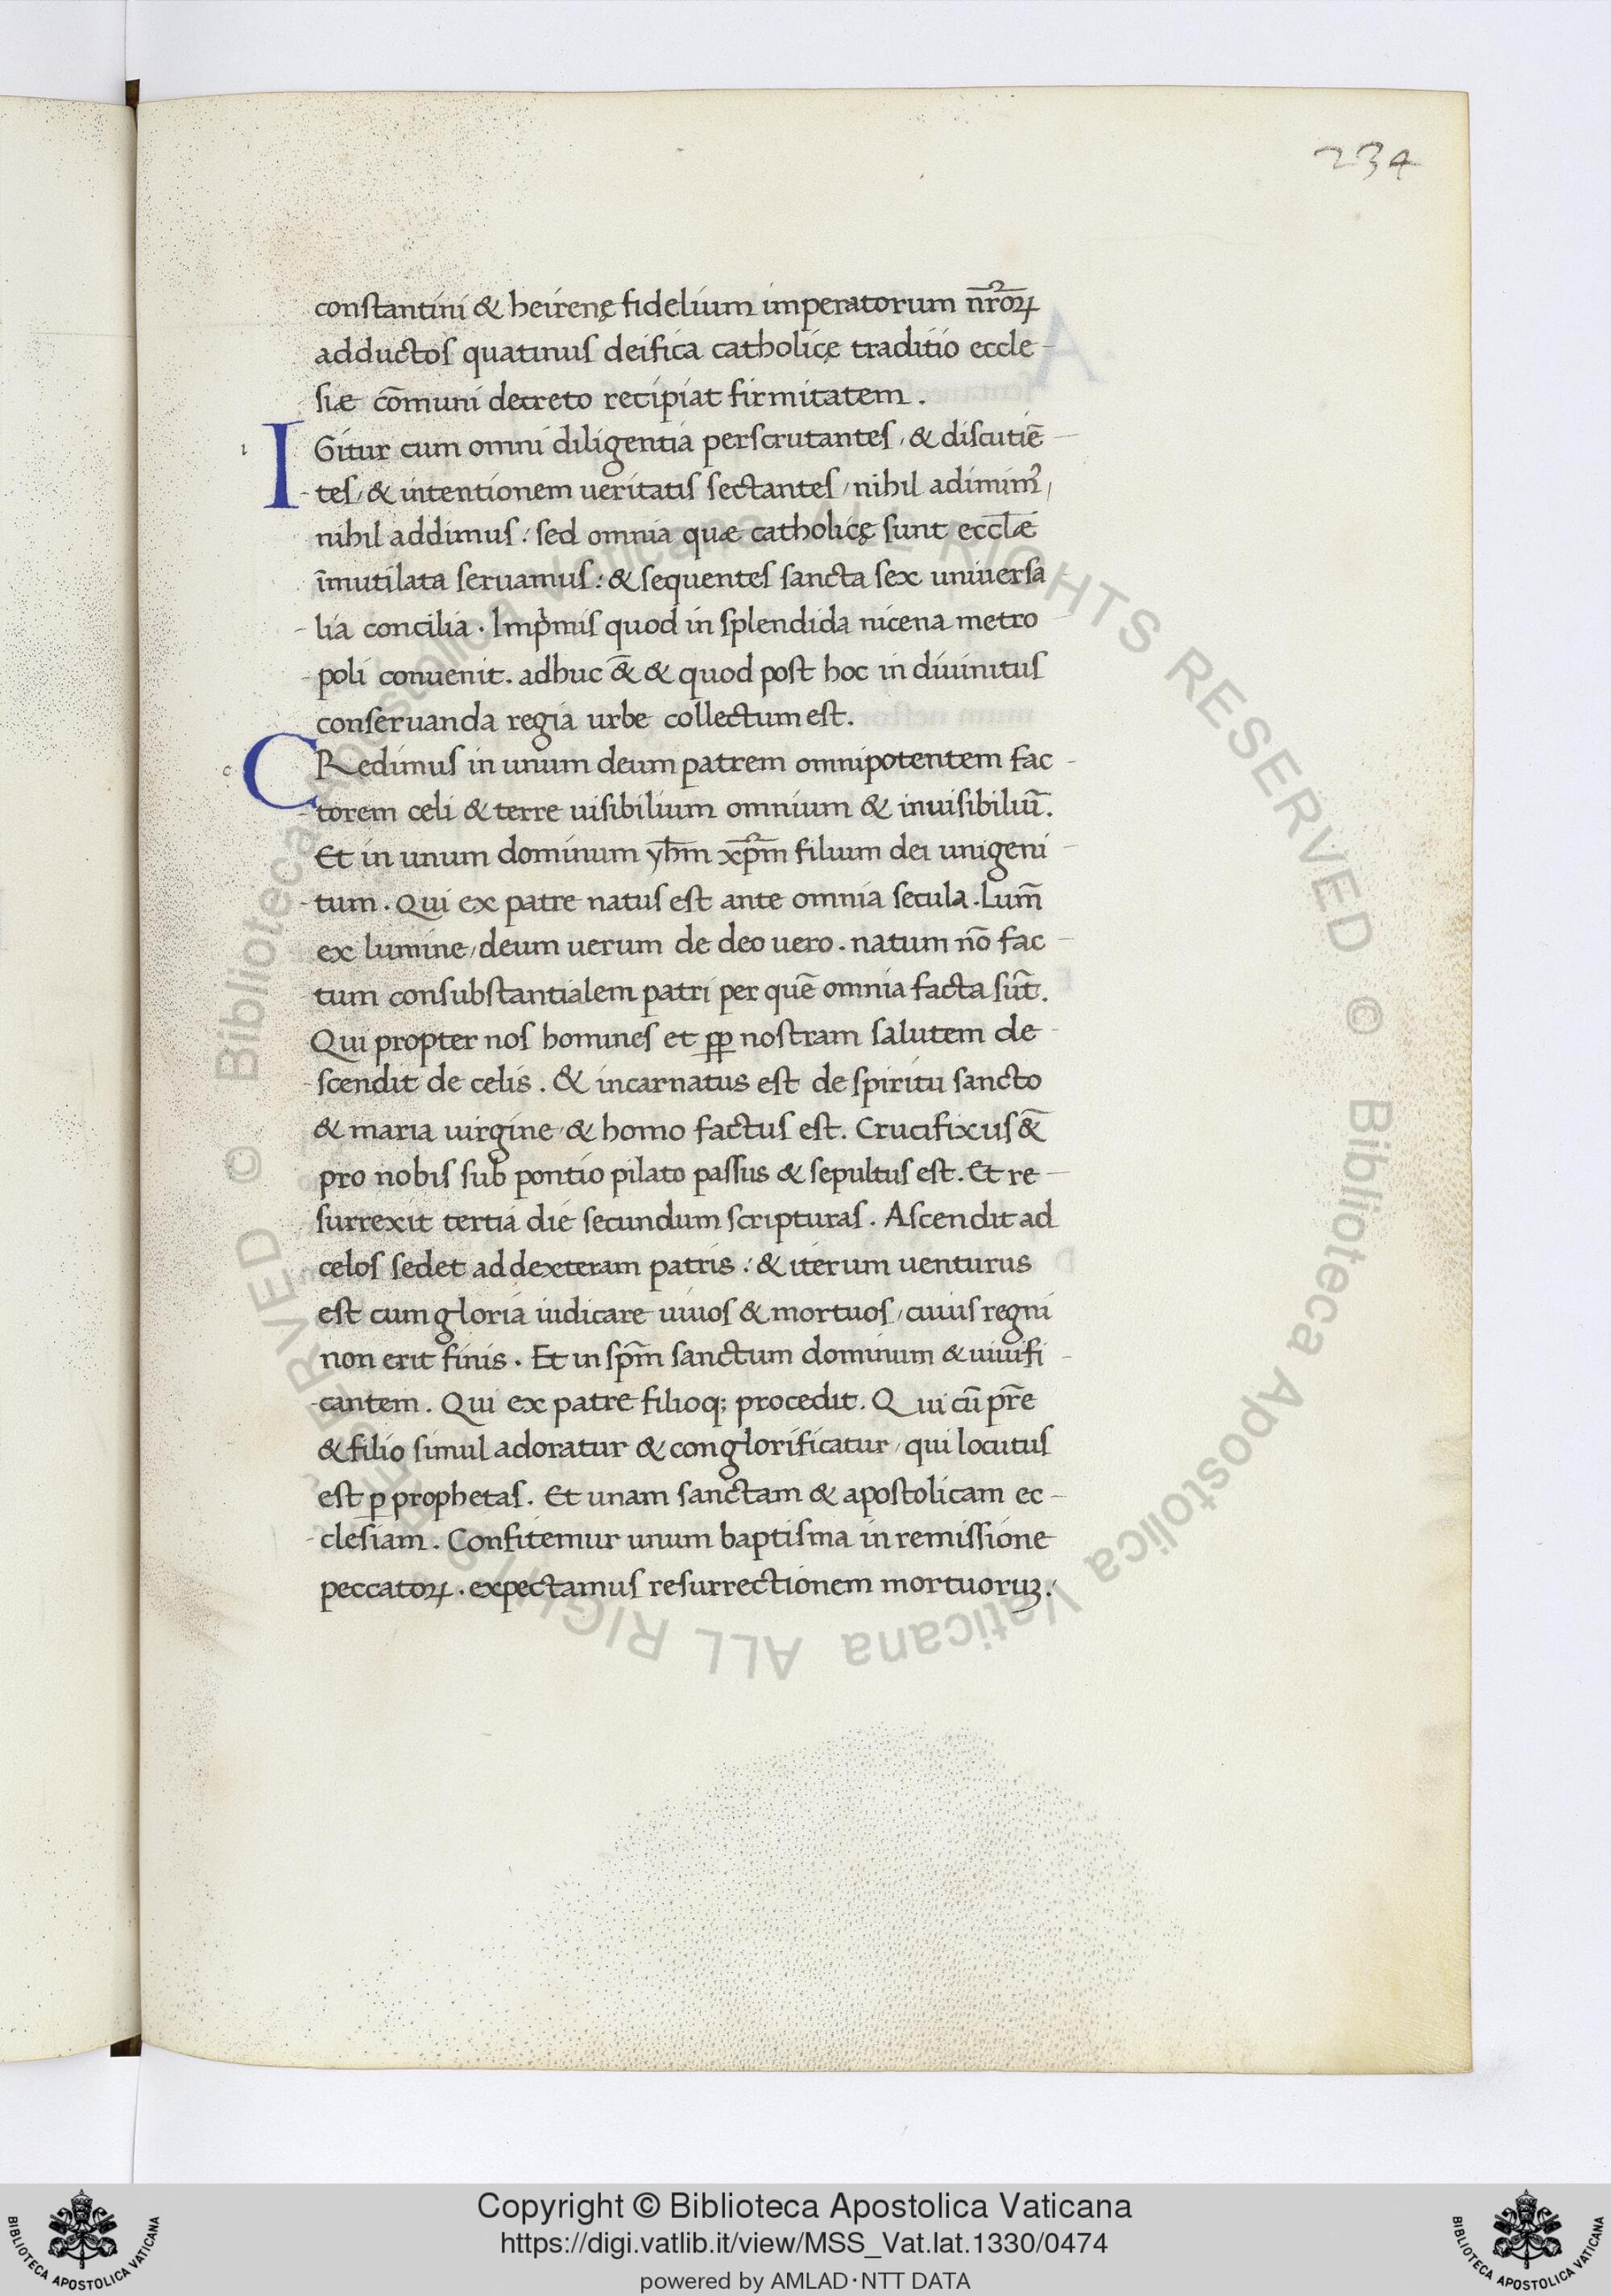 234
constantini & heirenę fidelium imperatorum nr̄oꝝ
adductos quatinus deifica catholicę traditio eccle-
siæ cōmuni decreto recipiat firmitatem.
IGitur cum omni diligentia perscrutantes, & discutiē-
tes, & intentionem ueritatis sectantes, nihil adimimꝰ,
nihil addimus: sed omnia quæ catholicę sunt eccl̄æ
īmutilata seruamus: & sequentes sancta sex uniuersa-
lia concilia. Imp'mis quod in splendida nicena metro-
poli conuenit. adhuc &̄ & quod post hoc in diuinitus
conseruanda regia urbe collectum est.
CRedimus in unum deum patrem omnipotentem fac-
torem celi & terre uisibilium omnium & inuisibiliū.
Et in unum dominum yhm̄ xpm̄ filium dei unigeni-
tum. Qui ex patre natus est ante omnia secula. Lum̄
ex lumine, deum uerum de deo uero. natum nō fac-
tum consubstantialem patri per quē omnia facta sūt.
Qui propter nos homines et ꝓp nostram salutem de-
scendit de celis. & incarnatus est de spiritu sancto
& maria uirgine, & homo factus est. Crucifixus &̄
pro nobis sub pontio pilato passus & sepultus est. Et re-
surrexit tertia die secundum scripturas. Ascendit ad
celos sedet ad dexteram patris: & iterum uenturus
est cum gloria iudicare uiuos & mortuos, cuius regni
non erit finis. Et in spm̄ sanctum dominum & uiuifi-
cantem. Qui ex patre filioq; procedit. Qui cū pr̄e
& filio simul adoratur & conglorificatur, qui locutus
est ꝑ prophetas. Et unam sanctam & apostolicam ec-
clesiam. Confitemur unum baptisma in remissione
peccatoꝝ. expectamus resurrectionem mortuoruꝫ.
i
c
© Biblioteca Apostolica Vaticana ALL RIGHTS RESERVED © Biblioteca Apostolica Vaticana ALL RIGHTS RESERVED
Copyright © Biblioteca Apostolica Vaticana
https://digi.vatlib.it/view/MSS_Vat.lat.1330/0474
powered by AMLAD·NTT DATA
BIBLIOTECA APOSTOLICA VATICANA
BIBLIOTECA APOSTOLICA VATICANA